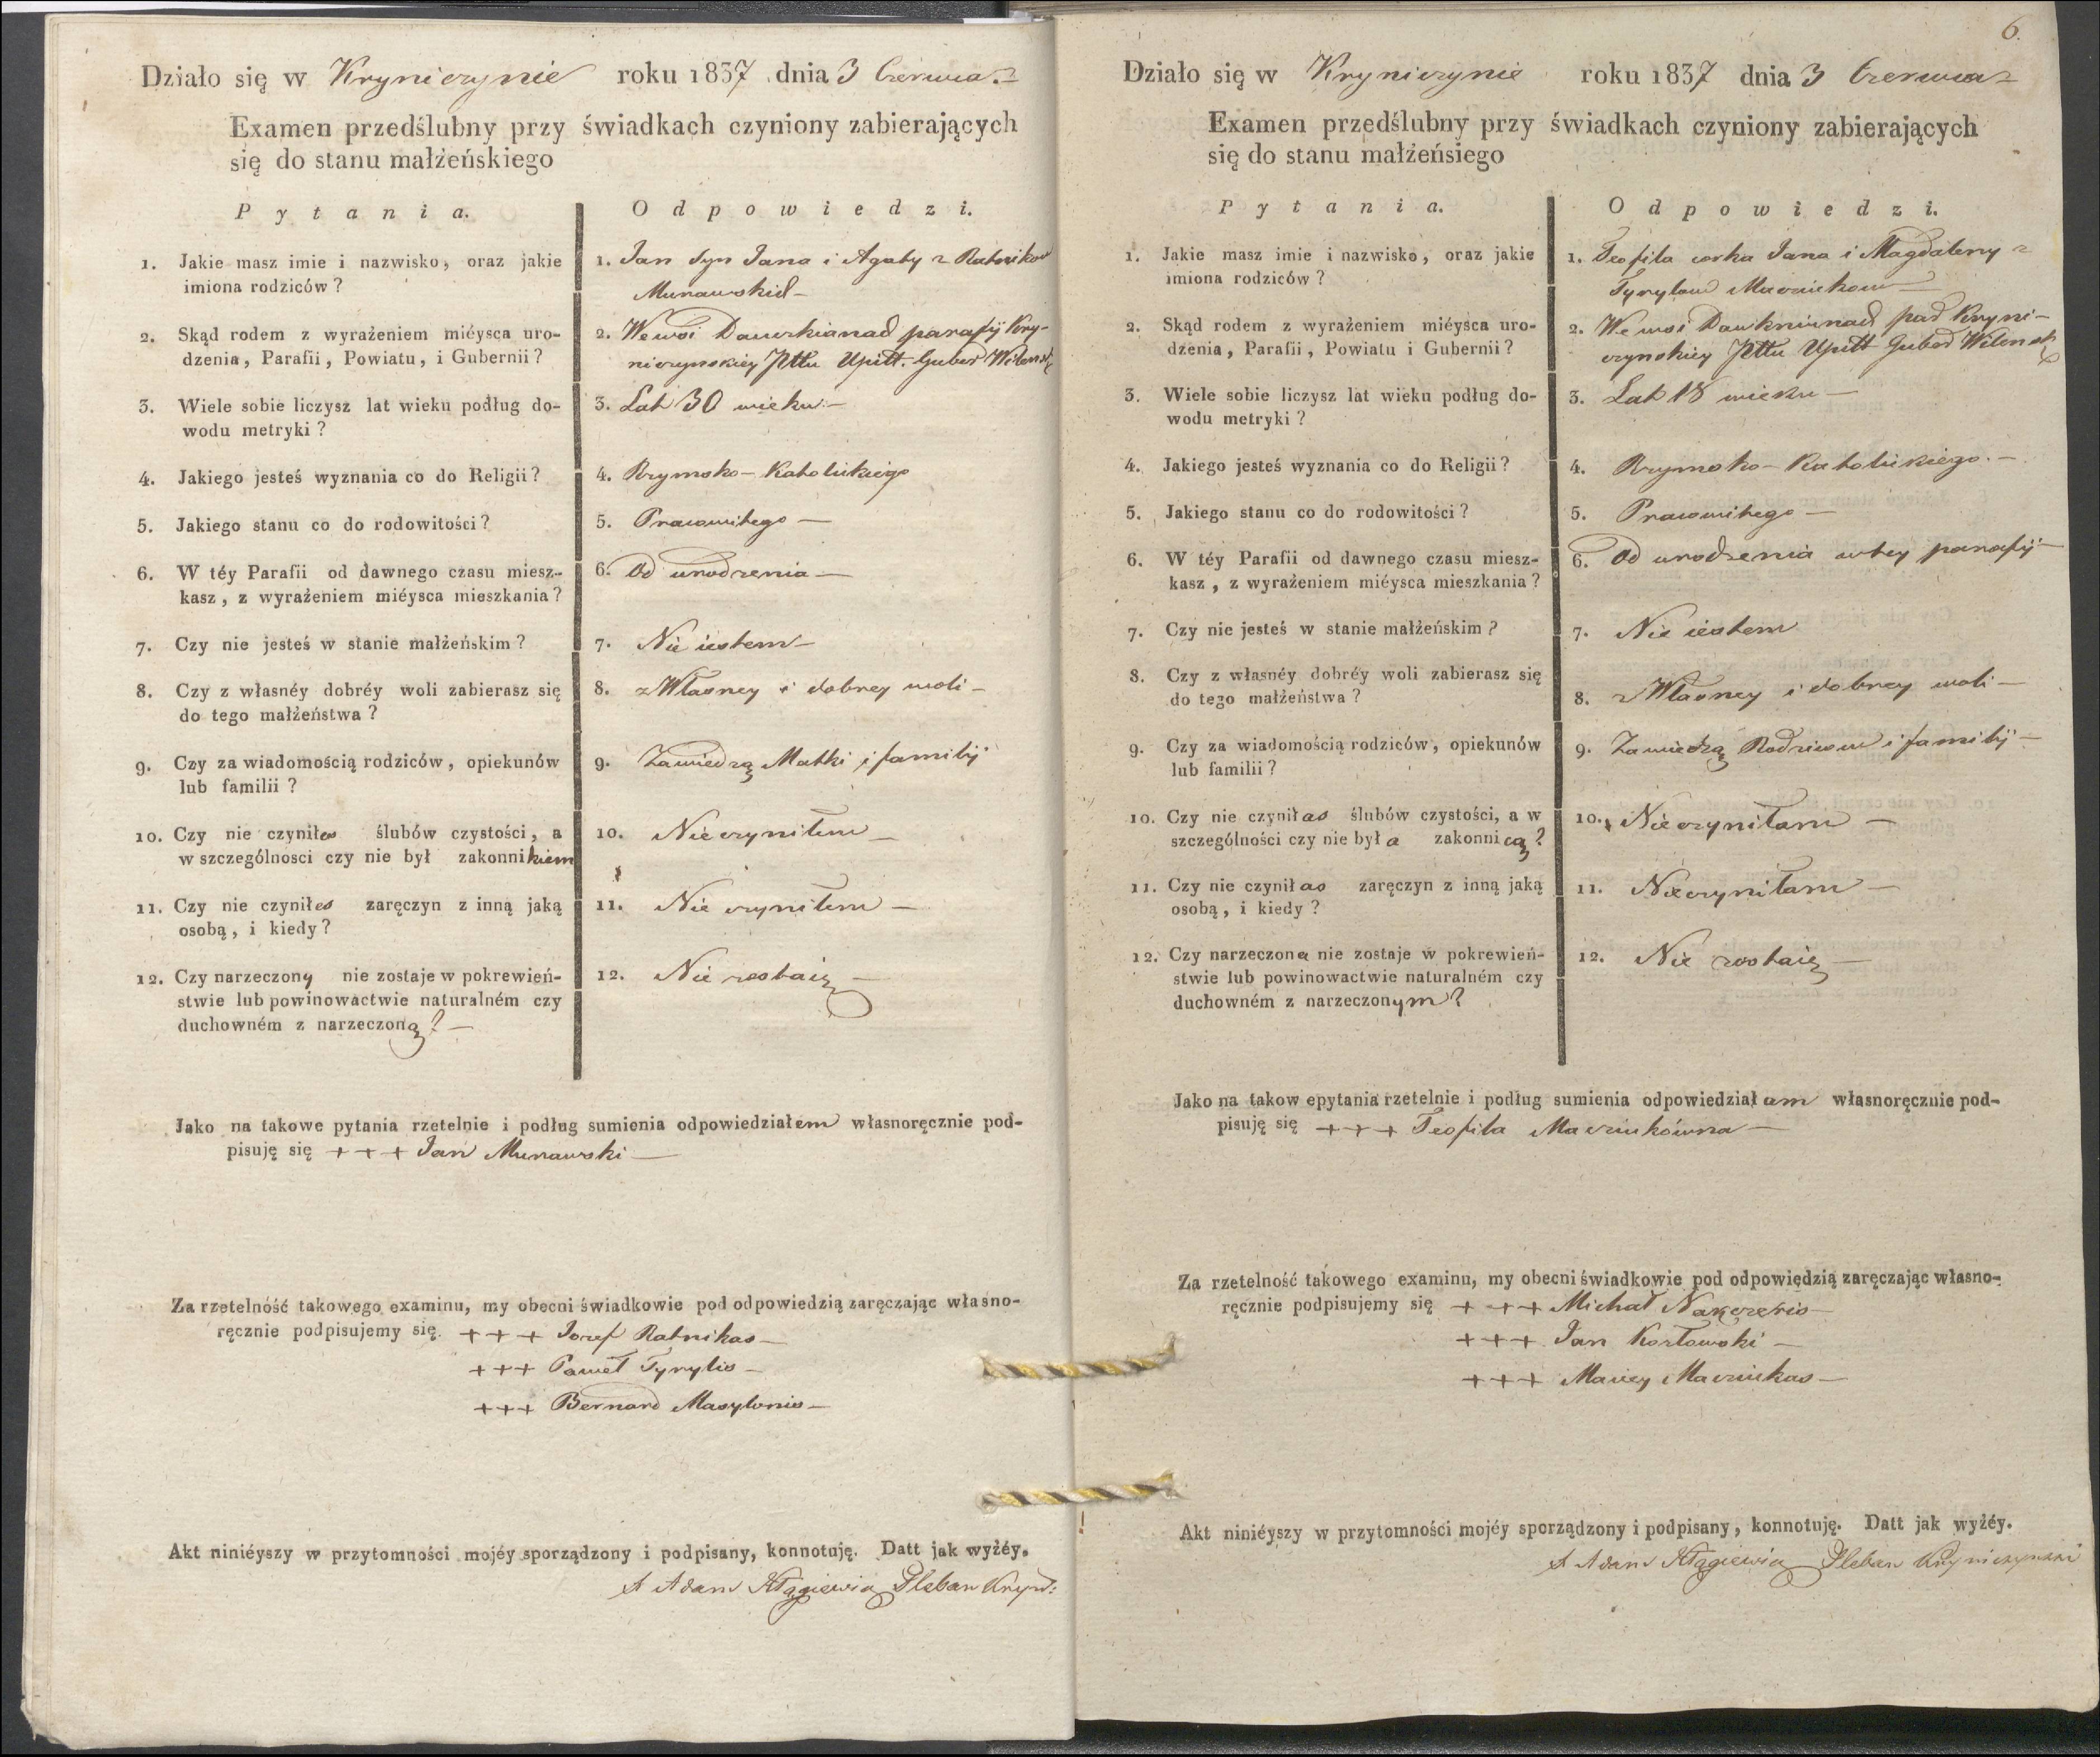 Działo się w Kryniczynie roku 1837 dnia 3 Czerwca
Examen przedślubny przy świadkach czyniony zabierających
się do stanu małżeńskiego
Pytania. Odpowiedzi.
1. Jakie masz imie i nazwisko, oraz jakie
imiona rodziców?
1. Jan Syn Jana i Agaty z Ratnikow
Munawskich
2. Skąd rodem z wyrażeniem miéysca uro-
dzenia, Parafii, Powiatu, i Gubernii?
2. We wsi parafij Kry-
niczynskiey Pttu Upitt. Guber Wilensk
3. Wiele sobie liczysz lat wieku podług do-
wodu metryki?
3. Lat 30 wieku
4. Jakiego jesteś wyznania co do Religii?
4. Rzymsko-Katolickiego
5. Jakiego stanu co do rodowitości?
5. Pracowitego
6. W téy Parafii od dawnego czasu miesz-
kasz, z wyrażeniem miéysca mieszkania?
6. Od urodzenia
7. Czy nie jesteś w stanie małżeńskim?
7. Nie iestem
8. Czy z własnéy dobréy woli zabierasz się
do tego małżeństwa?
8. z Własney i dobrey woli
9. Czy za wiadomością rodziców, opiekunów
lub familii?
9. Zawiedzą Matki i familij
10. Czy nie czyniłes ślubów czystości, a
w szczególnosci czy nie był zakonnikiem
10. Nieczyniłem
11. Czy nie czyniłes zaręczyn z inną jaką
osobą, i kiedy?
11. Nie czyniłem
12. Czy narzeczony nie zostaje w pokrewień-
stwie lub powinowactwie naturalném czy
duchowném z narzeczoną?
12. Nie zostaię
Jako na takowe pytania rzetelnie i podług sumienia odpowiedziałem własnoręcznie pod-
pisuję się +++ Jan Munawski
Za rzetelność takowego examinu, my obecni świadkowie pod odpowiedzią zaręczając własno-
ręcznie podpisujemy się. +++ Jozef Ratnikas
+++ Paweł Tyrylis
+++ Bernard Masylonis
Akt niniéyszy w przytomności mojéy sporządzony i podpisany, konnotuję. Datt jak wyżéy.
X Adam Pleban Kryn:
6.
Działo się w Kryniczynie roku 1837 dnia 3 Czerwca
Examen przedślubny przy świadkach czyniony zabierających
się do stanu małżeńsiego
Pytania. Odpowiedzi.
1. Jakie masz imie i nazwisko, oraz jakie
imiona rodziców?
1. Teofila corka Jana i Magdaleny z
Tyrylow Macziukow
2. Skąd rodem z wyrażeniem miéysca uro-
dzenia, Parafii, Powiatu i Gubernii?
2. We wsi par Kryni-
czynskiey Pttu Upitt Guber Wilensk
3. Wiele sobie liczysz lat wieku podług do-
wodu metryki?
3. Lat 18 wieku
4. Jakiego jesteś wyznania co do Religii?
4. Rzymsko-Katolickiego.
5. Jakiego stanu co do rodowitości?
5. Pracowitego
6. W téy Parafii od dawnego czasu miesz-
kasz, z wyrażeniem miéysca mieszkania?
6. Od urodzenia wtey parafij
7. Czy nie jesteś w stanie małżeńskim?
7. Nie iestem
8. Czy z własnéy dobréy woli zabierasz się
do tego małżeństwa?
8. z Własney i dobrey woli
9. Czy za wiadomością rodziców, opiekunów
lub familii?
9. Zawiedzą Rodzicow i familij
10. Czy nie czyniłas ślubów czystości, a w
szczególności czy nie była zakonnicą?
10. Nieczyniłam
11. Czy nie czyniłas zaręczyn z inną jaką
osobą, i kiedy?
11. Nieczyniłam
12. Czy narzeczona nie zostaje w pokrewień-
stwie lub powinowactwie naturalném czy
duchowném z narzeczonym?
12. Nie zostaię
Jako na takow epytania rzetelnie i podług sumienia odpowiedziałam własnoręcznie pod-
pisuję się +++ Teofila Macziukówna
Za rzetelność takowego examinu, my obecni świadkowie pod odpowiedzią zaręczając własno-
ręcznie podpisujemy się +++ Michał
+++ Jan Kozłowski
+++ Maciey Macziukas
Akt niniéyszy w przytomności mojéy sporządzony i podpisany, konnotuję. Datt jak wyżéy.
X Adam Pleban Kryniczynski